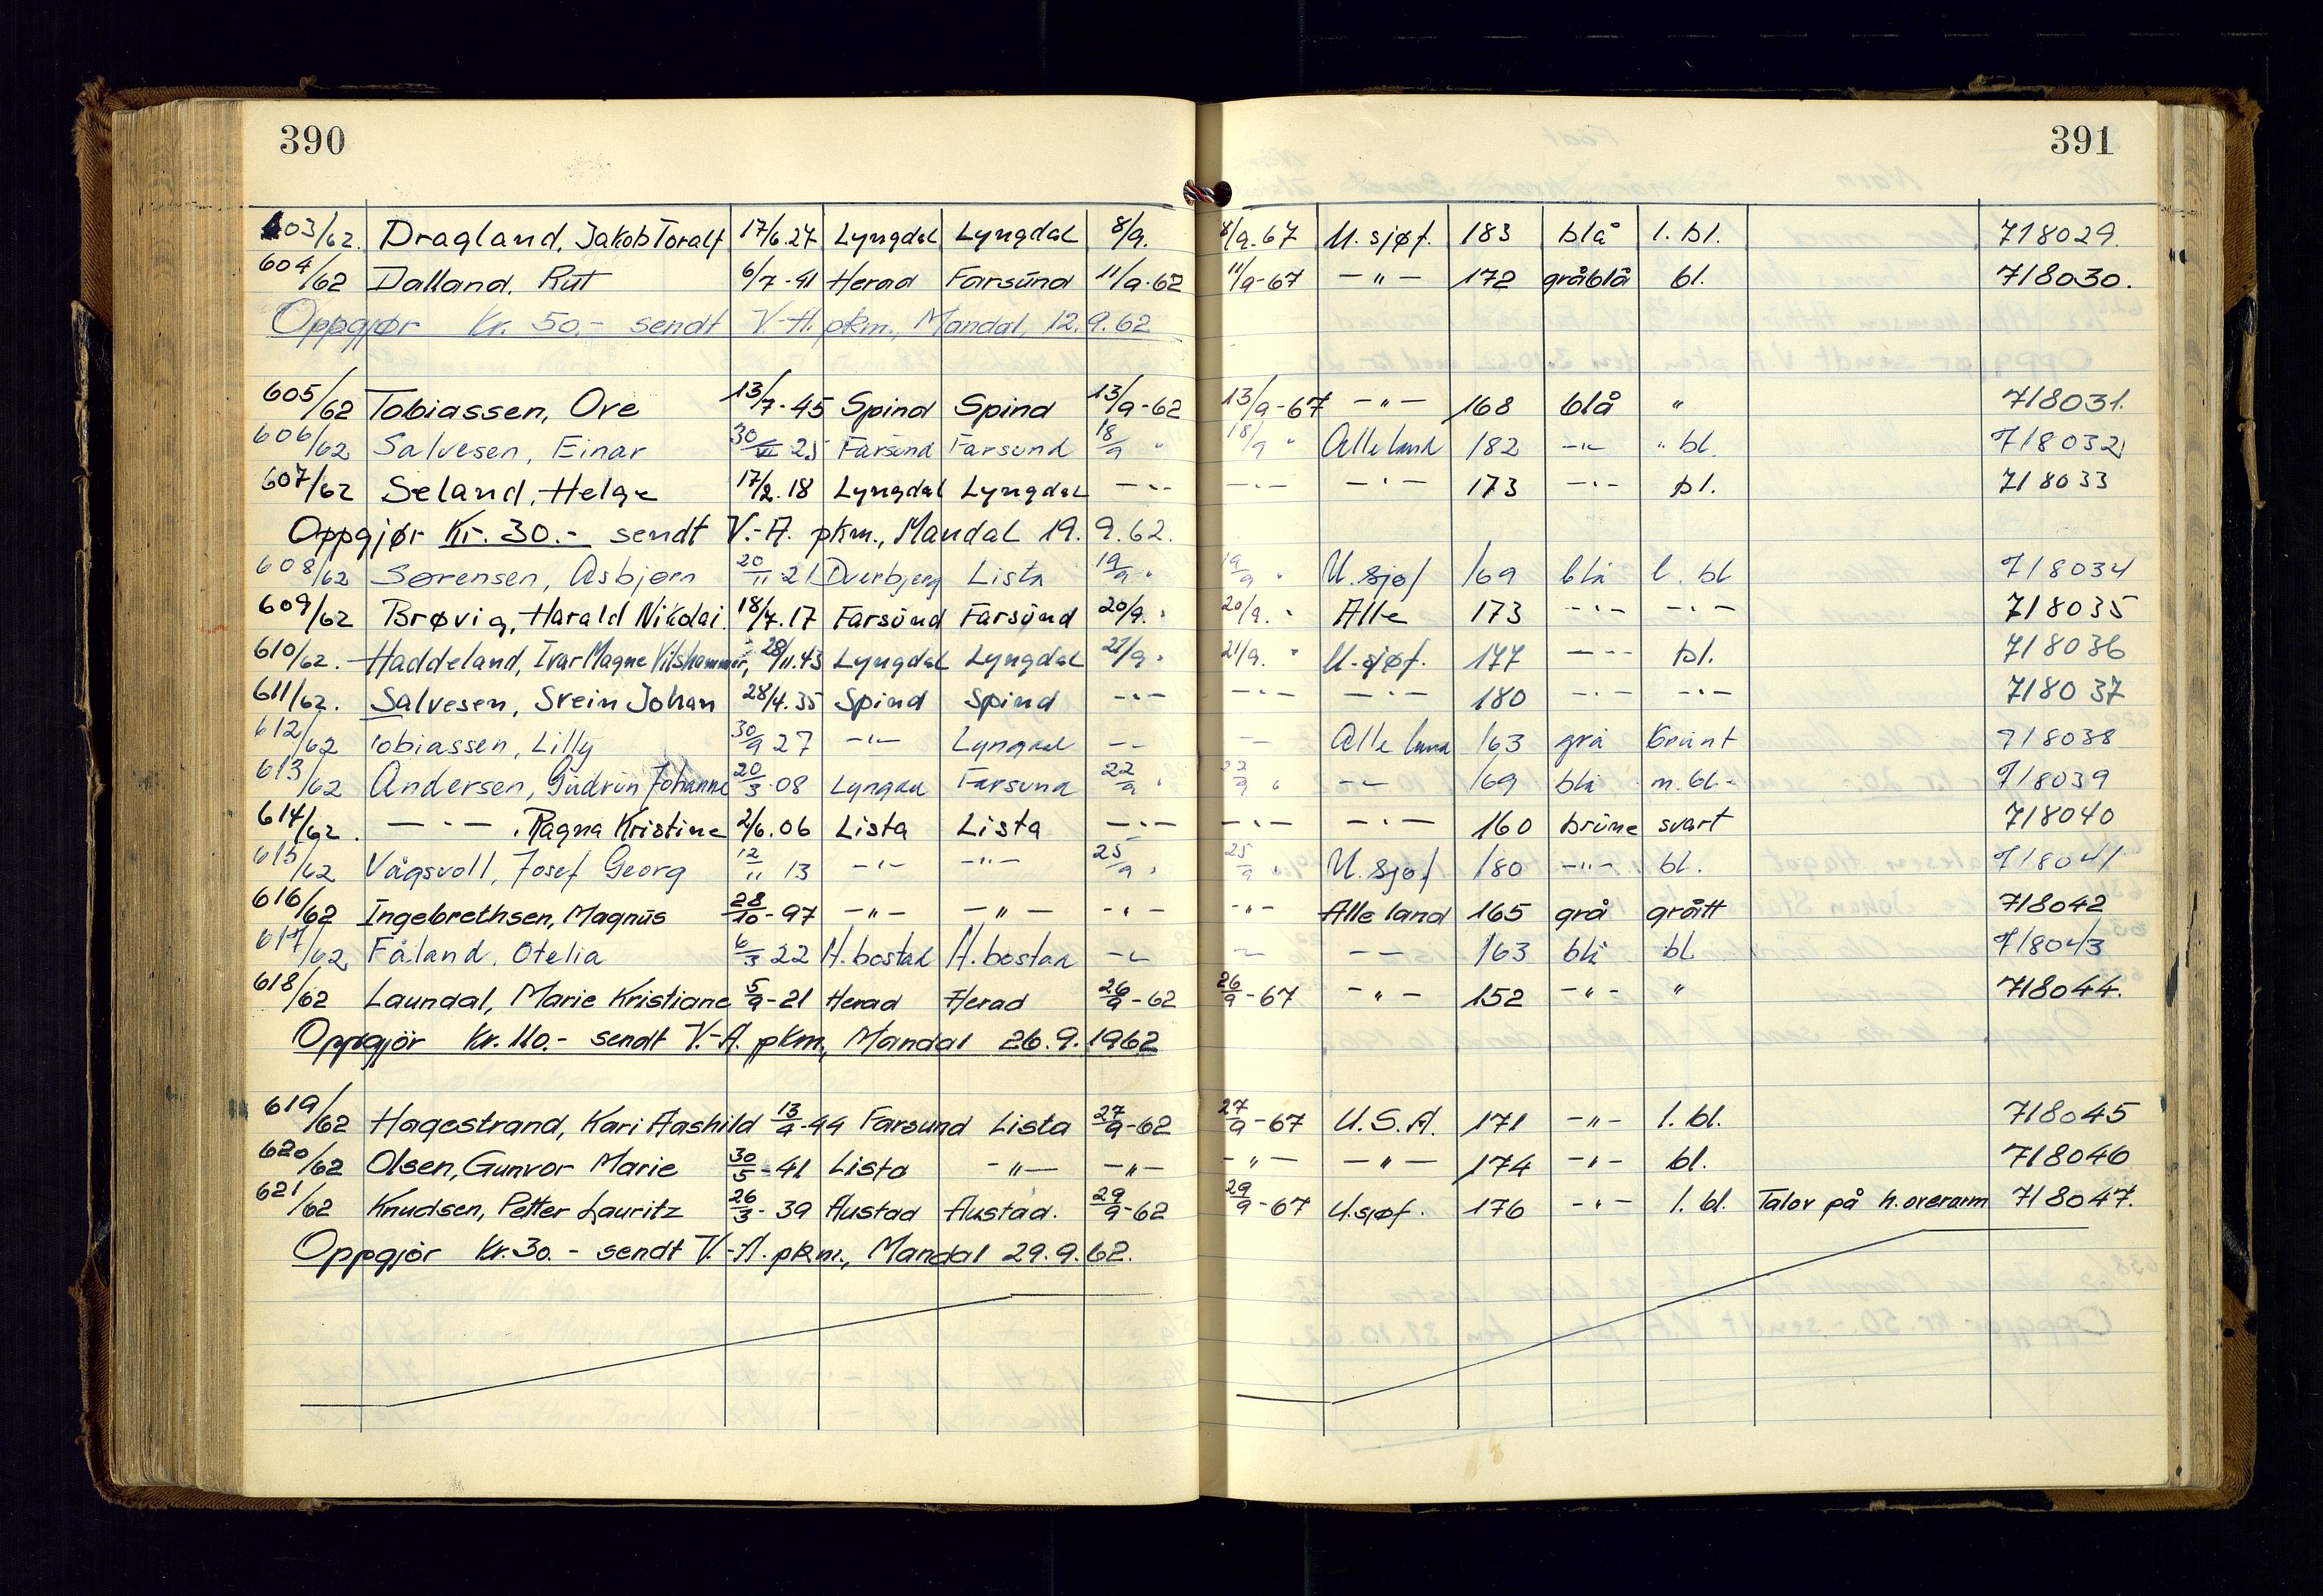 390
391
603/62. Dragland, Jakob Toralf 17/6.27 Lyngdal Lyngdal 8/9. 8/9.67 U. sjøf. 183 blå l. bl. 718029.
604/62 Dalland, Rut 6/7-41 Herad Farsund 11/9-62 11/9-67 -"- 172 gråblå bl. 718030.
Oppgjør Kr. 50.- sendt V-A. pkm., Mandal, 12.9.62
605/62 Tobiassen, Ove 13/7-45 Spind Spind 13/9-62 13/9-67 -"- 168 blå " 718031.
606/62 Salvesen, Einar 30/VI 25 Farsund Farsund 18/9 " 18/9 " Alle land 182 -"- " bl. 718032
607/62 Seland, Helge 17/2.18 Lyngdal Lyngdal -"- -"- -"- 173 -"- bl. 718033
Oppgjør Kr. 30.- sendt V.-A. pkm., Mandal 19.9.62.
608/62 Sørensen, Asbjørn 20/11 21 Lista 19/9 " 19/9 " U. sjøf 169 blå l. bl 718034
609/62 Brøvig, Harald Nikolai 18/7.17 Farsund Farsund 20/9. " 20/9. " Alle 173 -"- -"- 718035
610/62. Haddeland, Ivar Magne 28/11.43 Lyngdal Lyngdal 21/9 " 21/9. " U. sjøf. 177 -"- bl. 718036
611/62. Salvesen, Svein Johan 28/4.35 Spind Spind -"- -"- -"- 180 -"- -"- 718037
612/62 Tobiassen, Lilly 30/9 27 -"- Lyngdal -"- -"- Alle land 163 grå brunt 718038
613/62 Andersen, Gudrun Johanne 20/3.08 Lyngdal Farsund 22/9 " 22/9 " -"- 169 blå m. bl. 718039
614/62. -"-, Ragna Kristine 2/6.06 Lista Lista -"- -"- -"- 160 brune svart 718040
615/62 Vågsvoll, Josef Georg 12/11 13 -"- -"- 25/9 " 25/9 " U. sjøf 180 -"- bl. 718041
616/62 Ingebrethsen, Magnus 28/10-97 -"- -"- -"- -"- Alle land 165 grå grått 718042
617/62 Fåland, Otelia 6/3 22 H.bostad H.bostad -"- -"- -"- 163 blå bl. 718043
618/62 Laundal, Marie Kristiane 5/9-21 Herad Herad 26/9-62 26/9-67 -"- 152 -"- " 718044.
Oppgjör Kr. 110.- sendt V.-A. pkm., Mandal 26.9.1962
619/62 Hagestrand, Kari Aashild 13/9-44 Farsund Lista 27/9-62 27/9-67 U.S.A. 171 -"- l. bl. 718045
620/62 Olsen, Gunvor Marie 30/5-41 Lista -"- -"- -"- -"- 174 -"- bl. 718046
621/62 Knudsen, Petter Lauritz 26/3-39 Austad Austad. 29/9-62 29/9-67 U.sjøf. 176 -"- l. bl. Talov på h.overarm 718047.
Oppgjör Kr. 30.- sendt V.-A. pkm., Mandal 29.9.62.